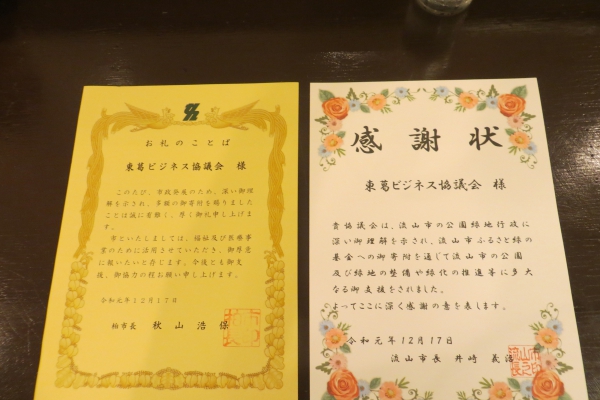 お礼のことば
東葛ビジネス協議会 様
このたび、市政発展のため、深い御理
解を示され、多額の御寄附を賜りました
ことは誠に有難く、厚く御礼申し上げま
す。
市といたしましては、福祉及び医療事
業のために活用させていただき、御厚意
に報いたいと存じます。今後とも御支
援、御協力の程お願い申し上げます。
令和元年12月17日
柏市長 秋山浩保
感謝状
東葛ビジネス協議会 様
貴協議会は、流山市の公園緑地行政に
深い御理解を示され、流山市ふるさと緑の
基金への御寄附を通じて流山市の公園
及び緑地の整備や緑化の推進等に多大
なる御支援をされました。
よってここに深く感謝の意を表します。
令和元年12月17日
流山市長 井崎 義治